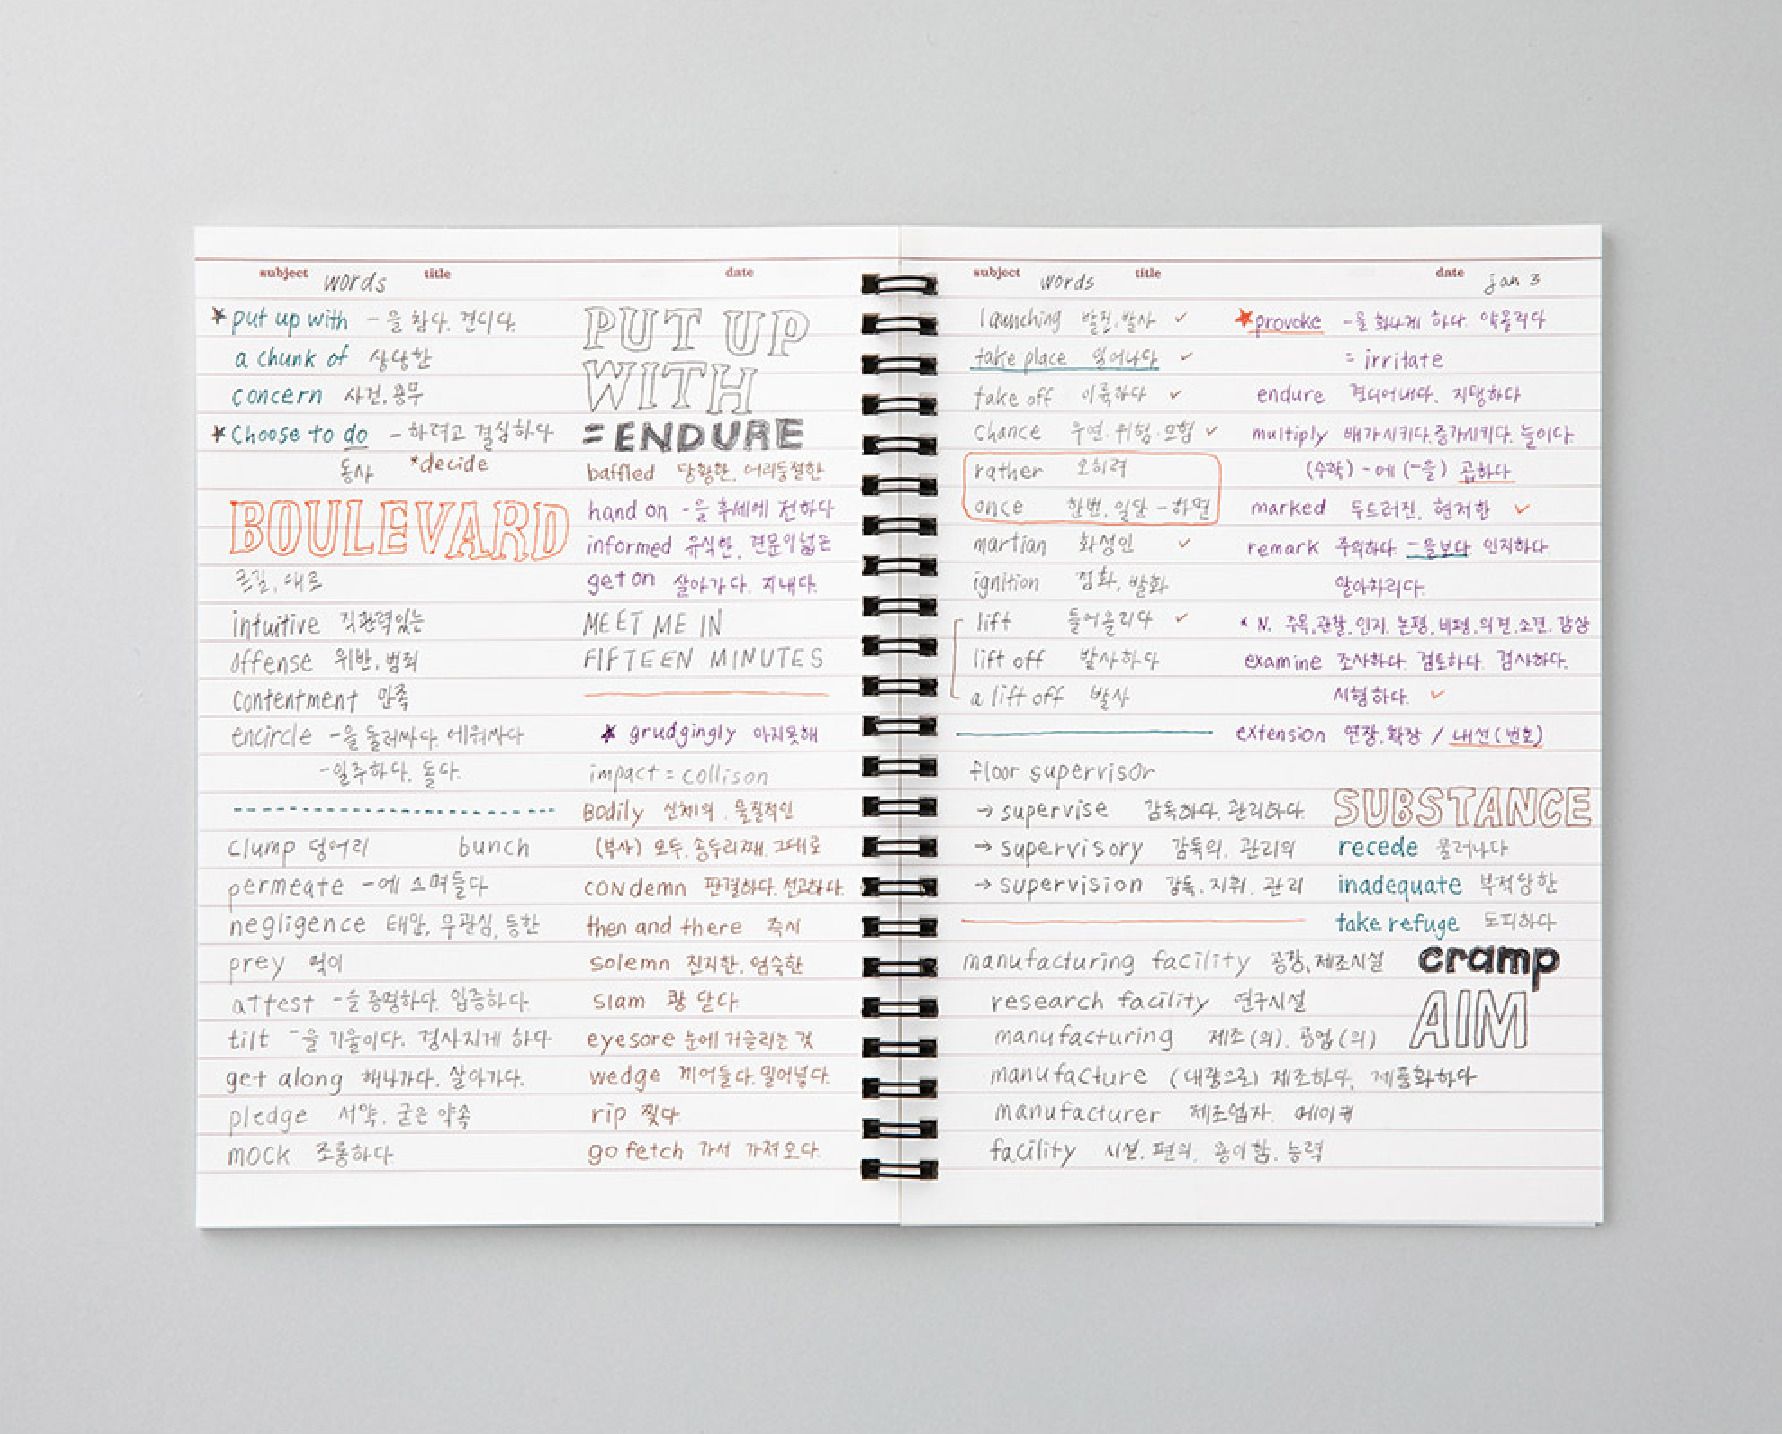 subject words title date
*put up with -을 참다. 견디다.
a chunk of 상당한
concern 사건, 용무
*Choose to do -하려고 결심하다
동사 *decide
BOULEVARD
큰길, 대로
intuitive 직관력있는
offense 위반, 범죄
contentment 만족
encircle -을 둘러싸다. 에워싸다
-일주하다, 돌다.
clump 덩어리 bunch
permeate -에 스며들다
negligence 태만, 무관심, 등한
prey 먹이
attest -을 증명하다. 입증하다.
tilt -을 기울이다. 경사지게 하다
get along 해나가다. 살아가다.
pledge 서약, 굳은 약속
mock 조롱하다.
PUT UP
WITH
=ENDURE
baffled 당황한, 어리둥절한
hand on -을 후세에 전하다
informed 유식한, 견문이넓은
get on 살아가다. 지내다.
MEET ME IN
FIFTEEN MINUTES
★ grudgingly 마지못해
impact = collison
Bodily 신체의, 물질적인
(부사) 모두, 송두리째, 그대로
condemn 판결하다. 선고하다.
then and there 즉시
solemn 진지한, 엄숙한
slam 쾅 닫다.
eyesore 눈에 거슬리는 것
wedge 끼어들다. 밀어넣다.
rip 찢다.
go fetch 가서 가져오다.
subject words title date jan 3
launching 발진, 발사 ✓
take place 일어나다 ✓
take off 이륙하다 ✓
chance 우연. 위험. 모험 ✓
rather 오히려
once 한번, 일단 -하면
martian 화성인 ✓
ignition 점화, 발화
lift 들어올리다 ✓
lift off 발사하다
a lift off 발사
floor supervisor
→ supervise 감독하다. 관리하다.
→ supervisory 감독의, 관리의
→ supervision 감독, 지휘, 관리
manufacturing facility 공장, 제조시설
research facility 연구시설
manufacturing 제조(의), 공업(의)
manufacture (대량으로) 제조하다, 제품화하다
manufacturer 제조업자. 메이커
facility 시설, 편의, 용이함, 능력
★provoke -을 화나게 하다. 약올리다
= irritate
endure 견디어내다. 지탱하다
multiply 배가시키다. 증가시키다. 늘이다.
(수학) -에 (-을) 곱하다
marked 두드러진, 현저한 ✓
remark 주의하다. -을보다 인지하다
알아차리다.
N. 주목, 관찰, 인지. 논평, 비평, 의견, 소견, 감상
examine 조사하다. 검토하다. 검사하다.
시험하다. ✓
extension 연장, 확장 / 내선(번호)
SUBSTANCE
recede 물러나다
inadequate 부적당한
take refuge 도피하다
cramp
AIM